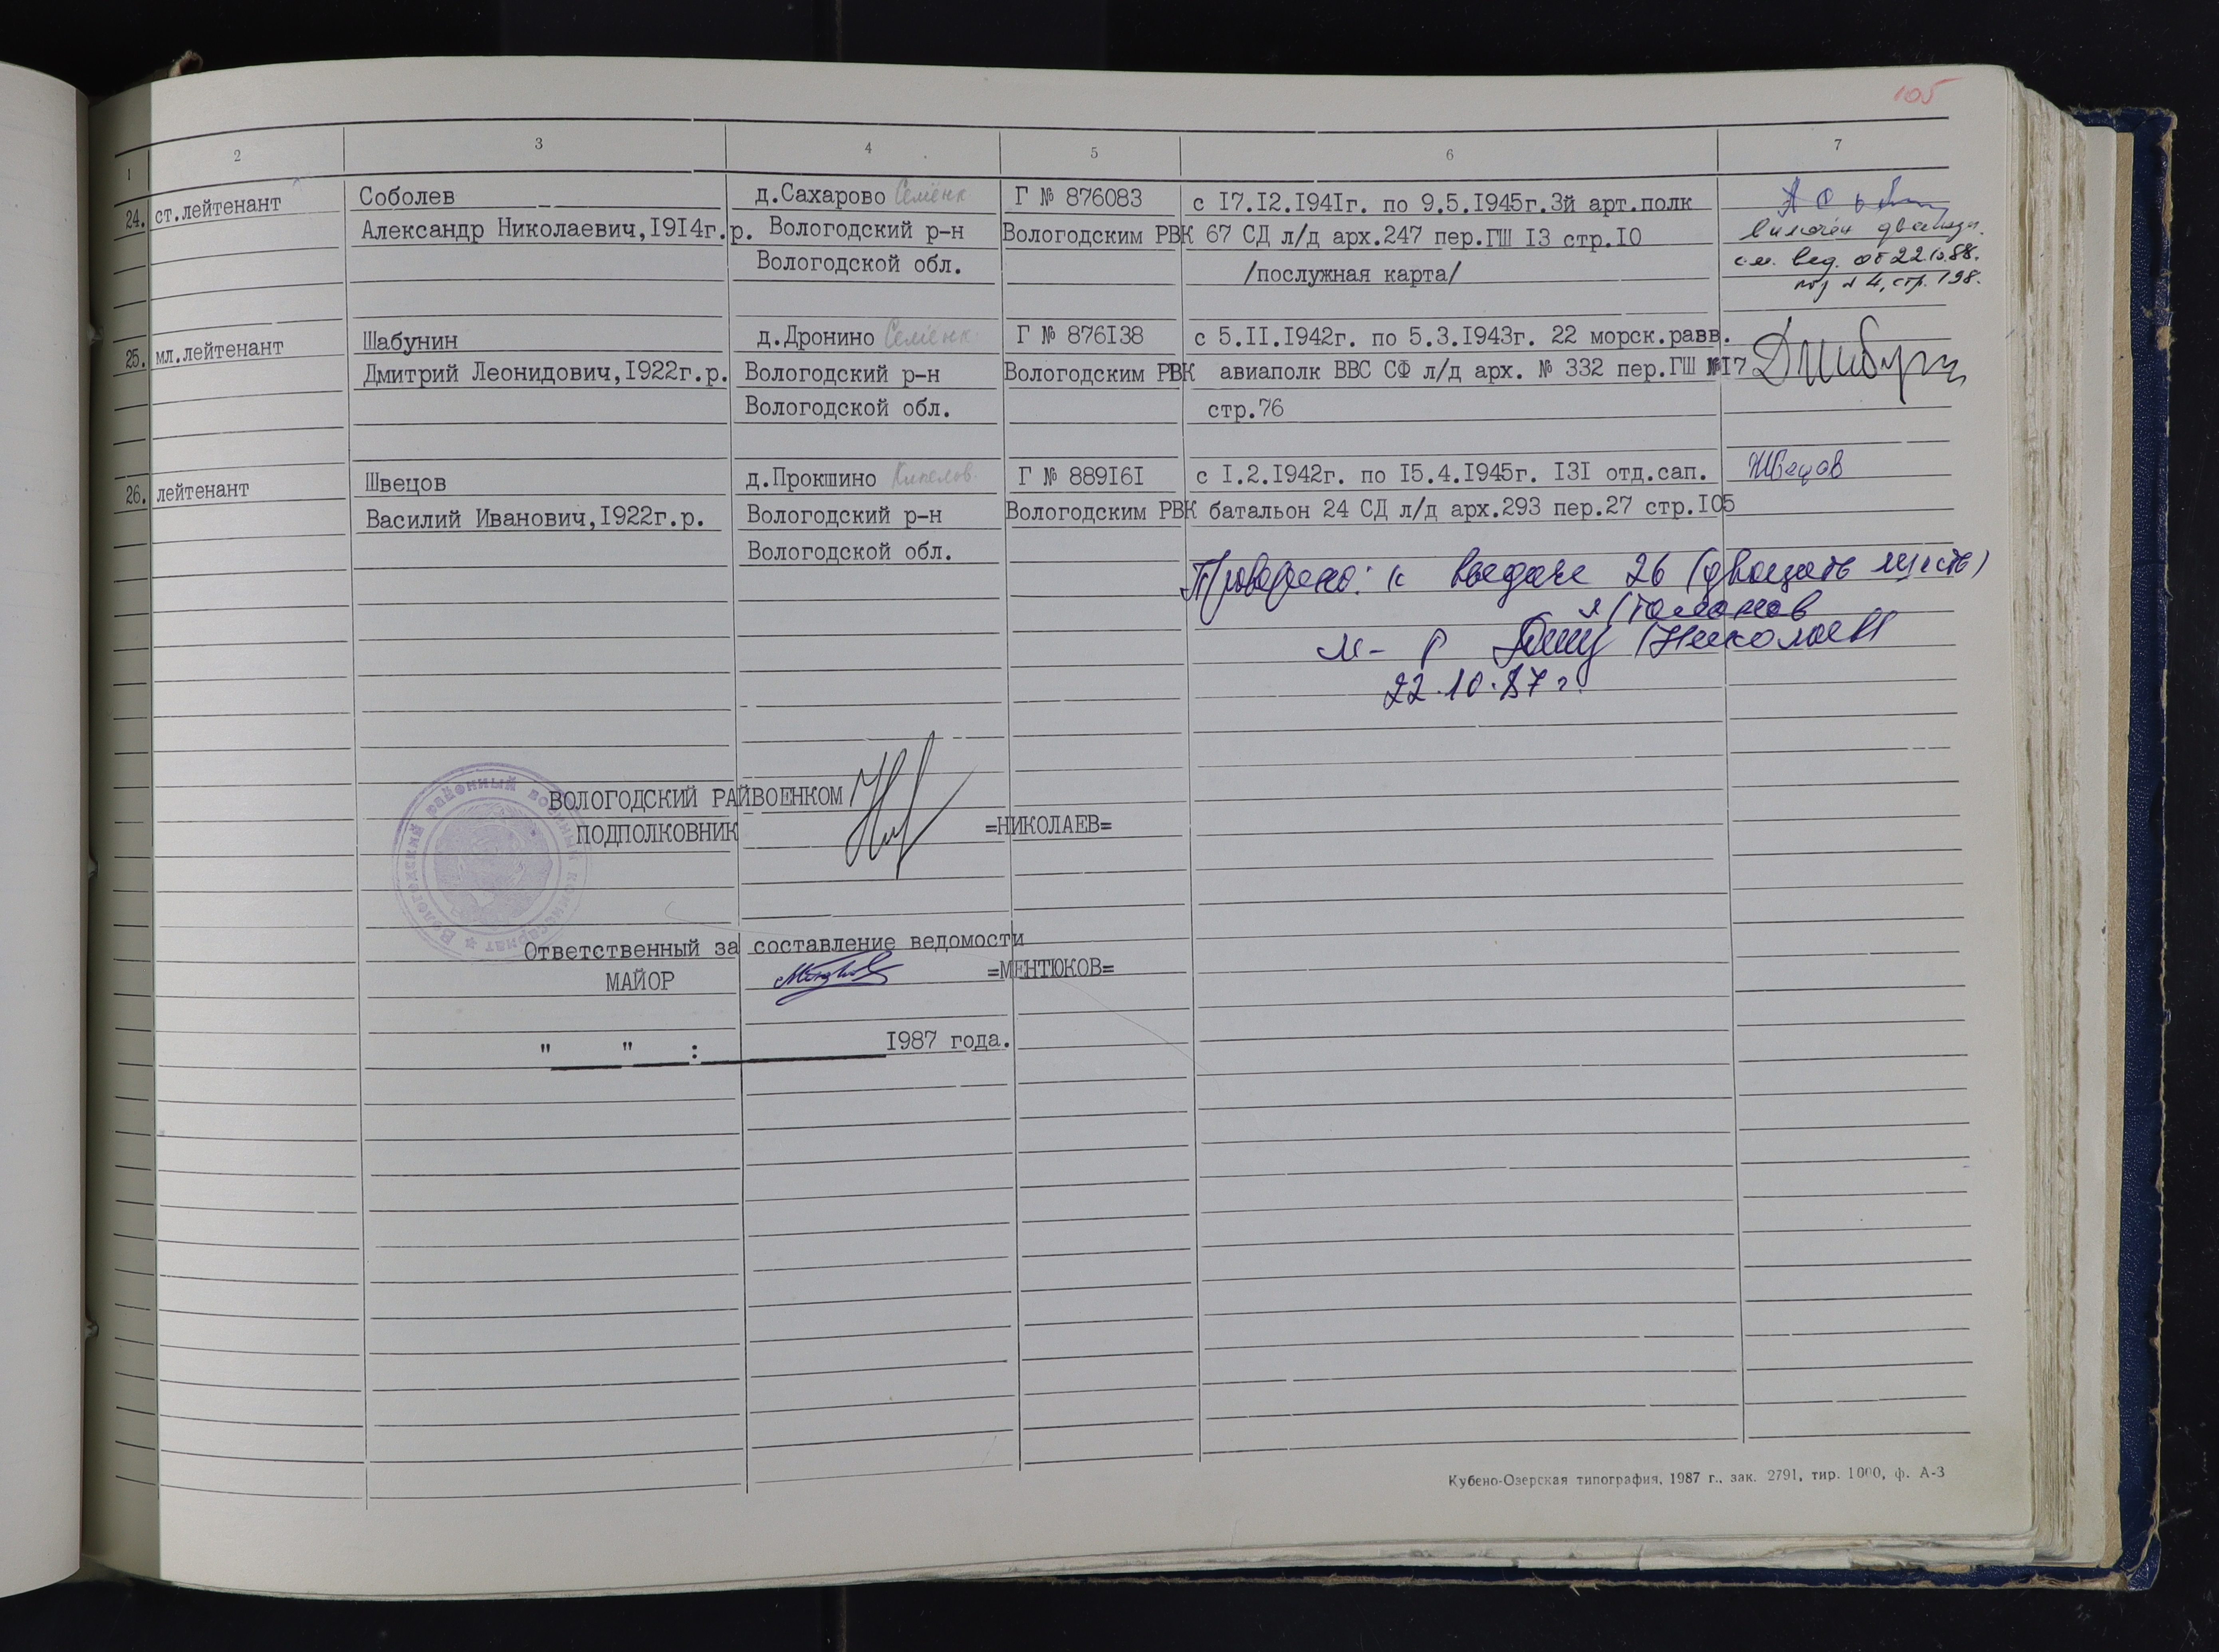 105
1 2 3 4 5 6 7
24. ст.лейтенант Соболев д.Сахарово Семёнк Г № 876083 с 17.12.1941г. по 9.5.1945г.3й арт.полк
Александр Николаевич,1914г.р. Вологодский р-н Вологодским РВК 67 СД л/д арх.247 пер.ГШ 13 стр.10 включён дважды.
Вологодской обл. /послужная карта/ см. вед. от 22.10.88.
№ 4, стр. 198.
25. мл.лейтенант Шабунин д.Дронино Семёнк Г № 876138 с 5.11.1942г. по 5.3.1943г. 22 морск.разв.
Дмитрий Леонидович,1922г.р. Вологодский р-н Вологодским РВК авиаполк ВВС СФ л/д арх. № 332 пер.ГШ №17
Вологодской обл. стр.76
26. лейтенант Швецов д.Прокшино Кипелов. Г № 889161 с 1.2.1942г. по 15.4.1945г. 131 отд.сап. Швецов
Василий Иванович,1922г.р. Вологодский р-н Вологодским РВК батальон 24 СД л/д арх.293 пер.27 стр.105
Вологодской обл.
Проверено: к выдаче 26 (двацать шесть)
м-р /Николаев
22.10.87 г.
ВОЛОГОДСКИЙ РАЙВОЕНКОМ
ПОДПОЛКОВНИК =НИКОЛАЕВ=
Вологодский районный военный комиссариат
Ответственный за составление ведомости
МАЙОР =МЕНТЮКОВ=
" " : 1987 года.
Кубено-Озерская типография, 1987 г., зак. 2791, тир. 1000, ф. А-3